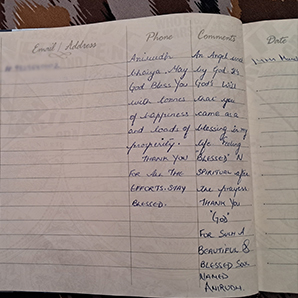 Email / Address Phone Comments Date
Anirudh An Angel was
bhaiya. May by God it's
God Bless You God's Will
with tonnes that you
of happiness came as a
and loads of blessing in my
prosperity. life
THANK YOU BLESSED N
FOR ALL THE SPIRITUAL
EFFORTS. STAY are prayers
BLESSED. THANK YOU
"GOD"
FOR SUCH A
BEAUTIFUL &
BLESSED SOUL
NAMED
ANIRUDH